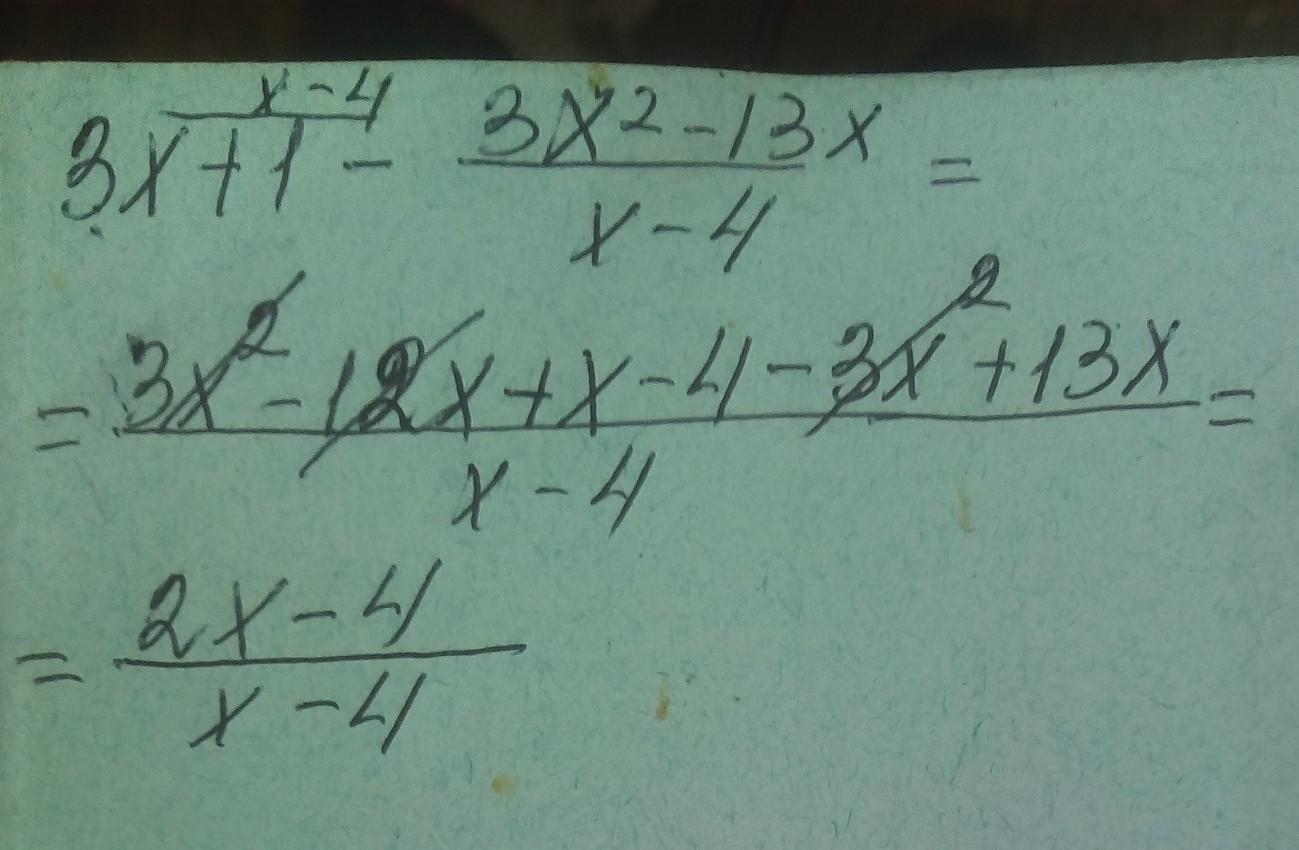 x-4
3x+1 - 3x²-13x =
x-4
= 3x²-12x+x-4-3x²+13x =
x-4
= 2x-4
x-4